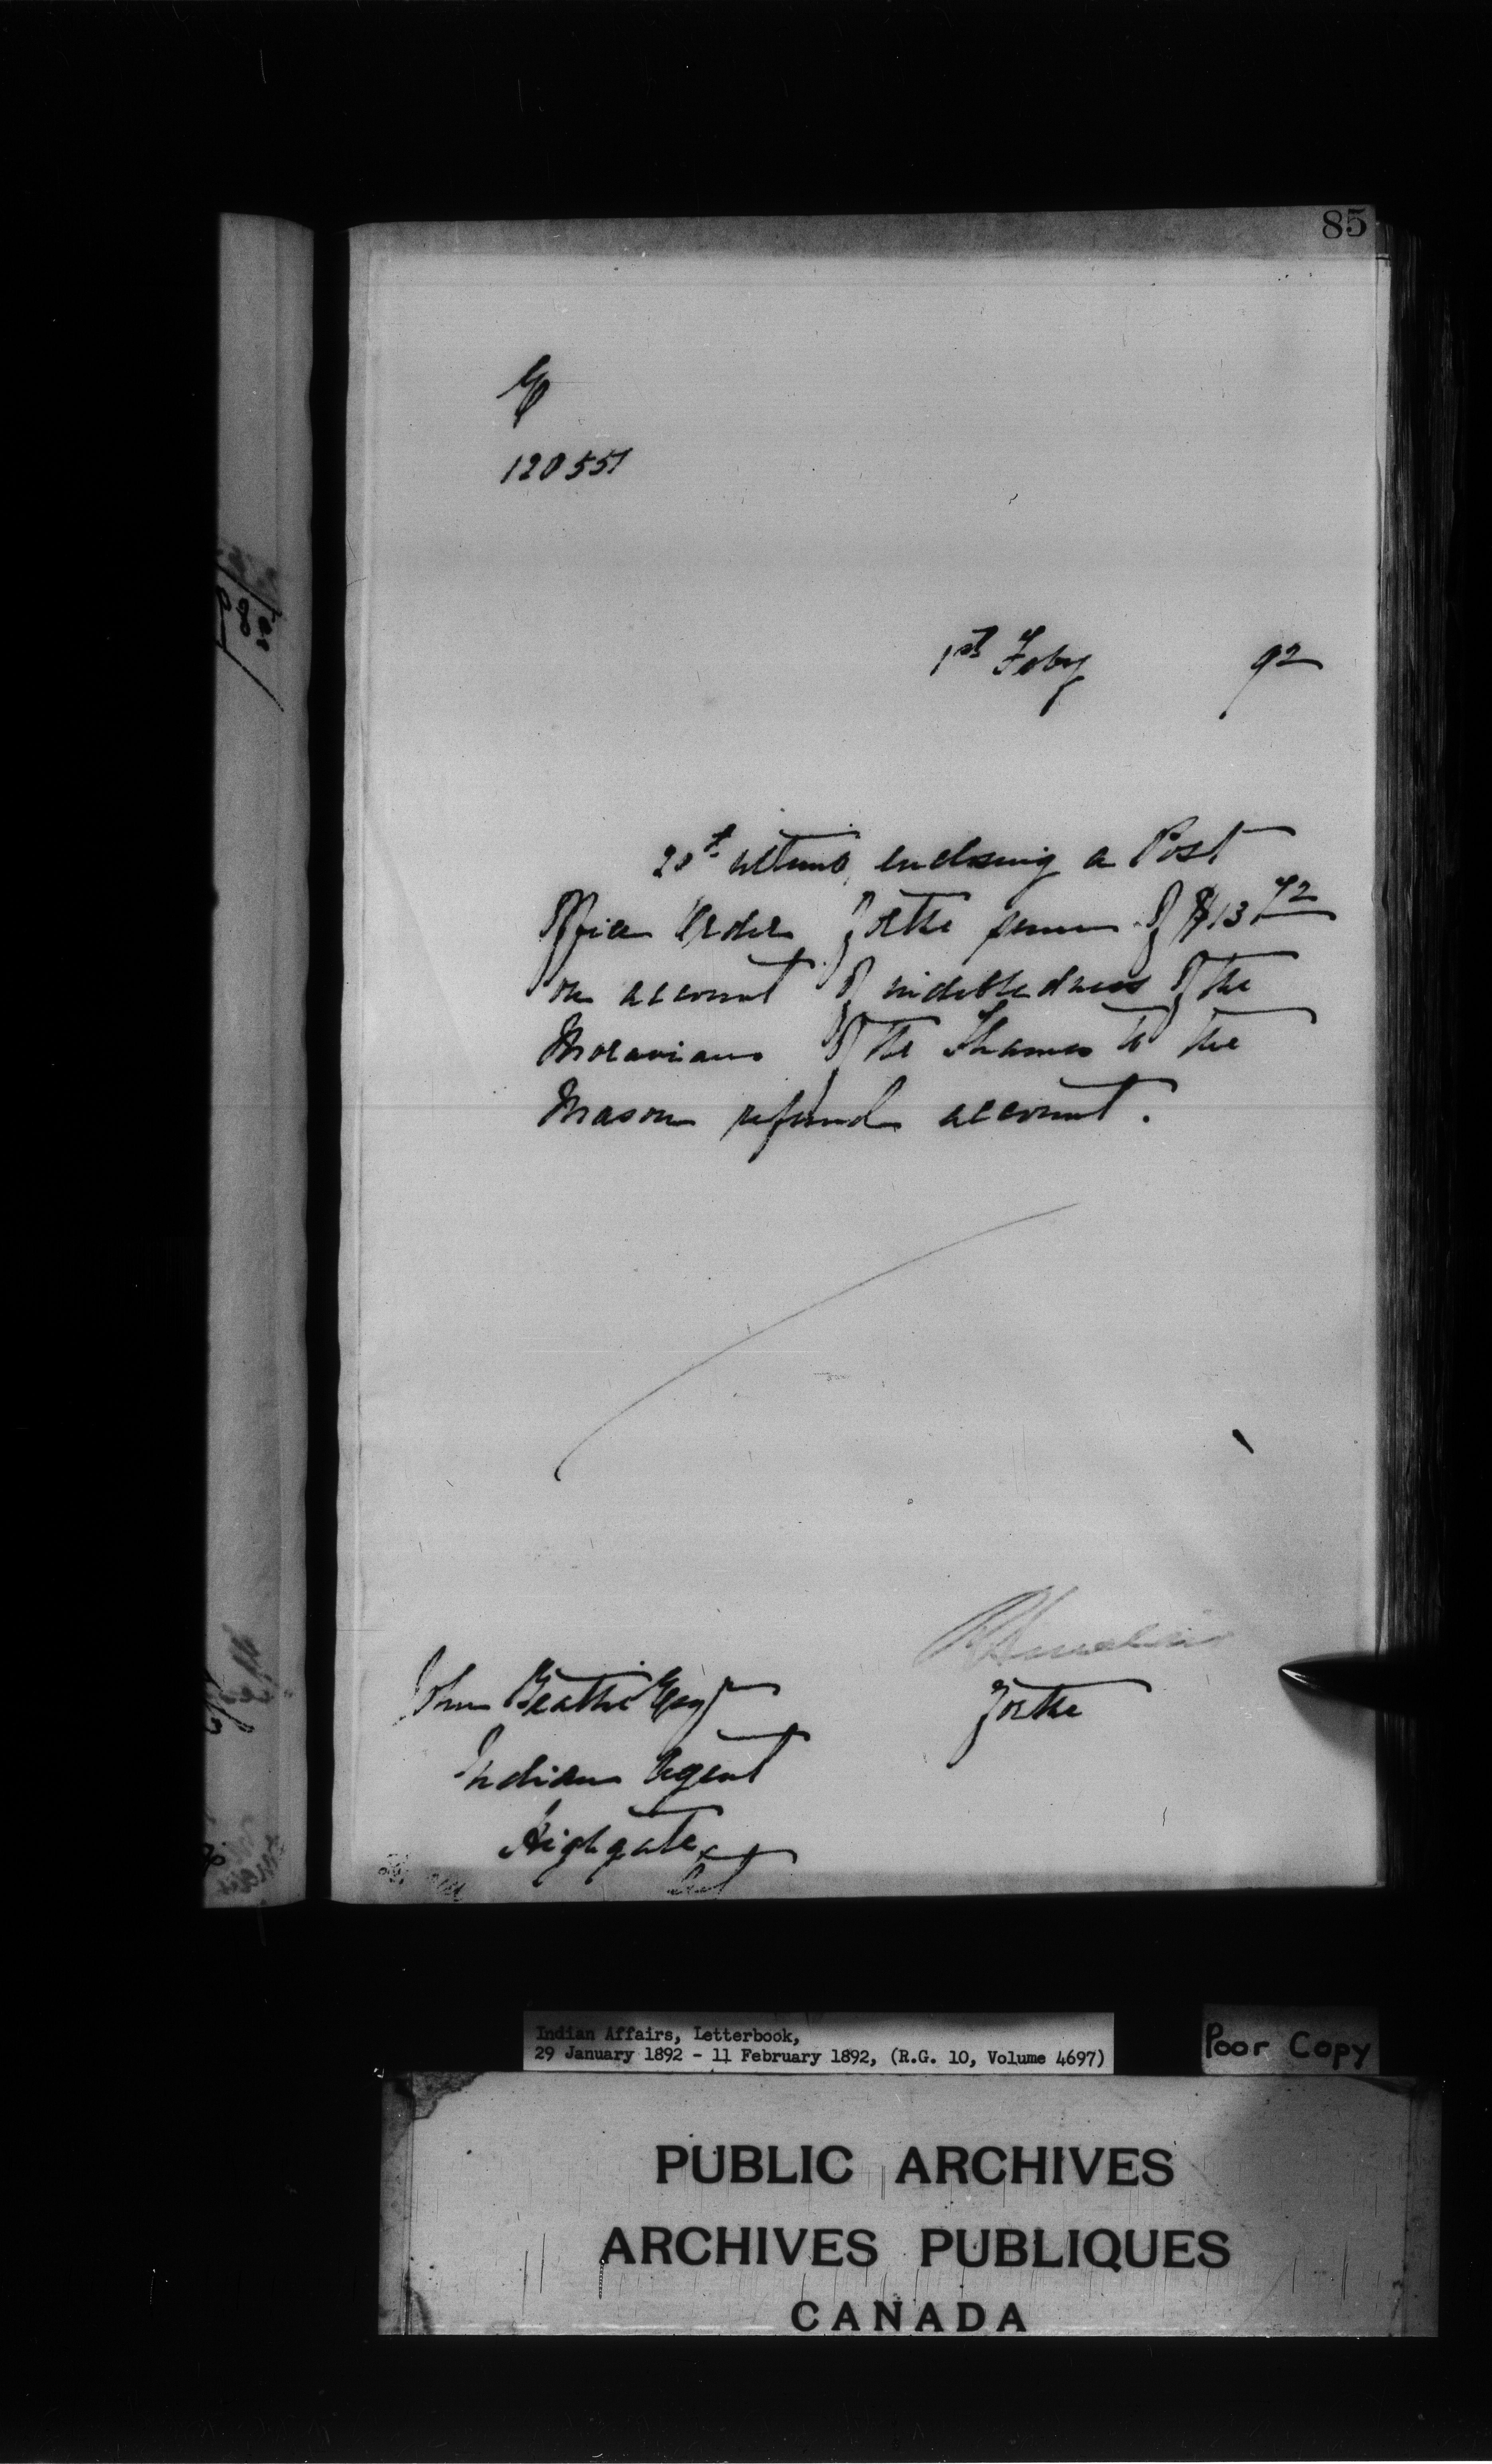 85
120551
1st Feby 92
ultimo, enclosing a Post
Office Order for the sum of $13 72
on account of indebtedness of the
Moravians of the Thames to the
Mason refund account.
John Beattie Esqr
for the
Indian Agent
Highgate,
Ont
Indian Affairs, Letterbook,
29 January 1892 - 11 February 1892, (R.G. 10, Volume 4697)
Poor Copy
PUBLIC ARCHIVES
ARCHIVES PUBLIQUES
CANADA